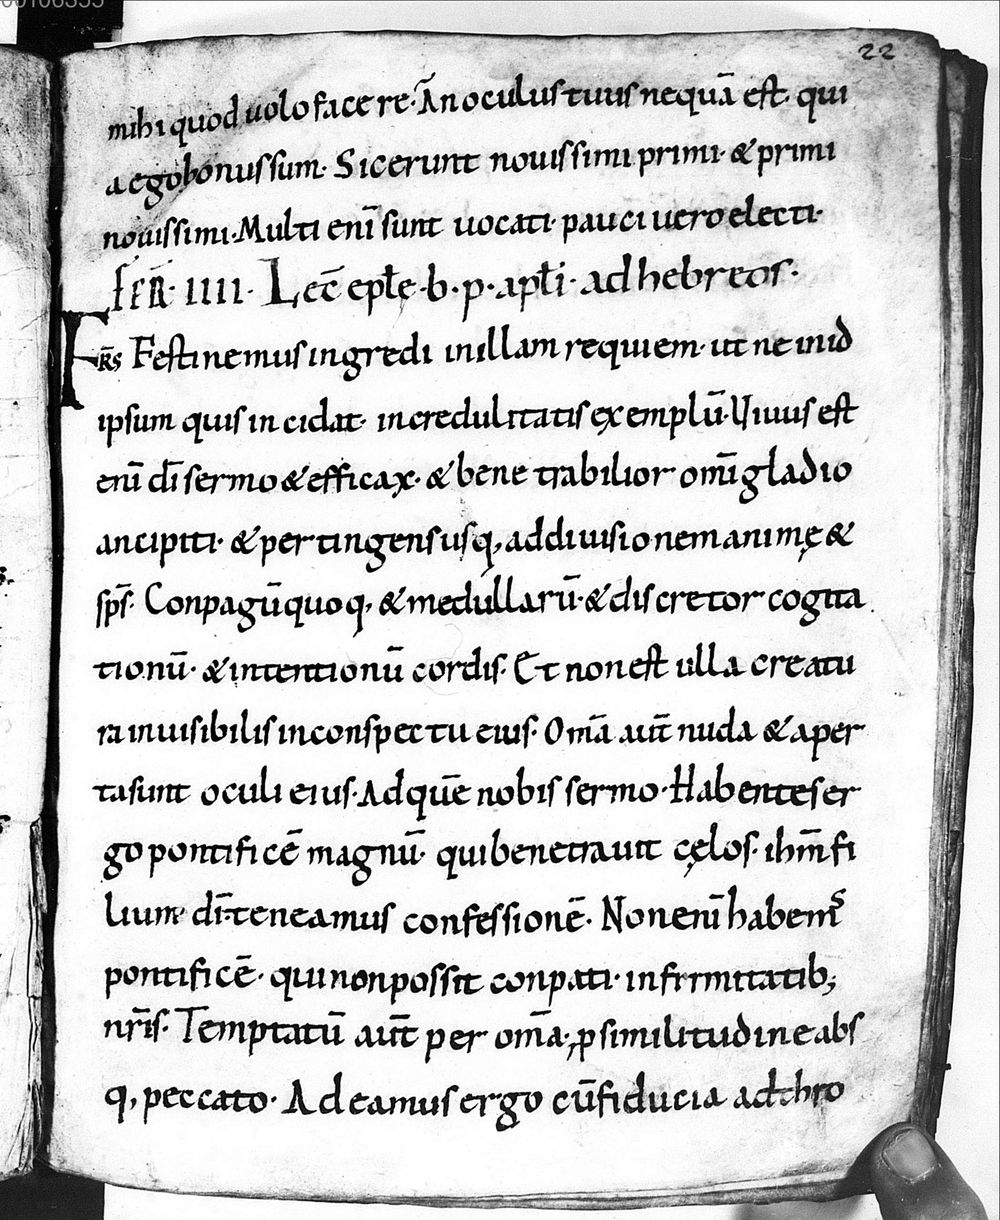 00106355
22
mihi quod uolo facere· Ān oculus tuus nequā est· qui
a ego bonus sum· Sic erunt nouissimi primi· & primi
nouissimi· Multi enī sunt uocati· pauci uero electi·
FER̄· IIII· Lec̄ epłę· b· p· apłi· ad hebreos·
FR̄s Festinemus ingredi in illam requiem· ut ne in id
ipsum quis incidat· incredulitatis exemplū· Uiuus est
enī dī sermo & efficax· & benetrabilior omī gladio
ancipiti· & pertingens usq, ad diuisionem animę &
sp̄s· Conpagū quoq, & medullarū· & discretor cogita
tionū· & intentionū cordis· Et non est ulla creatu
ra inuisibilis in conspectu eius· Omā aut̄ nuda & aper
ta sunt oculi eius· Ad quē nobis sermo· Habentes er
go pontificē magnū· qui benetrauit cęlos· ihm̄ fi
lium dī· teneamus confessionē· Non enī habem᷒
pontificē· qui non possit conpati· infirmitatib;
nr̄is· Temptatū aut̄ per omā· ꝓ similitudine abs
q, peccato· Adeamus ergo cū fiducia ad thro